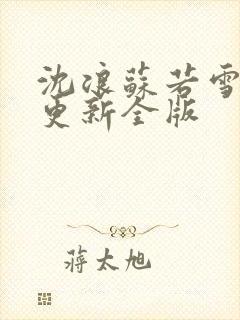 沈浪蘇若雪
更新全版
蔣太旭